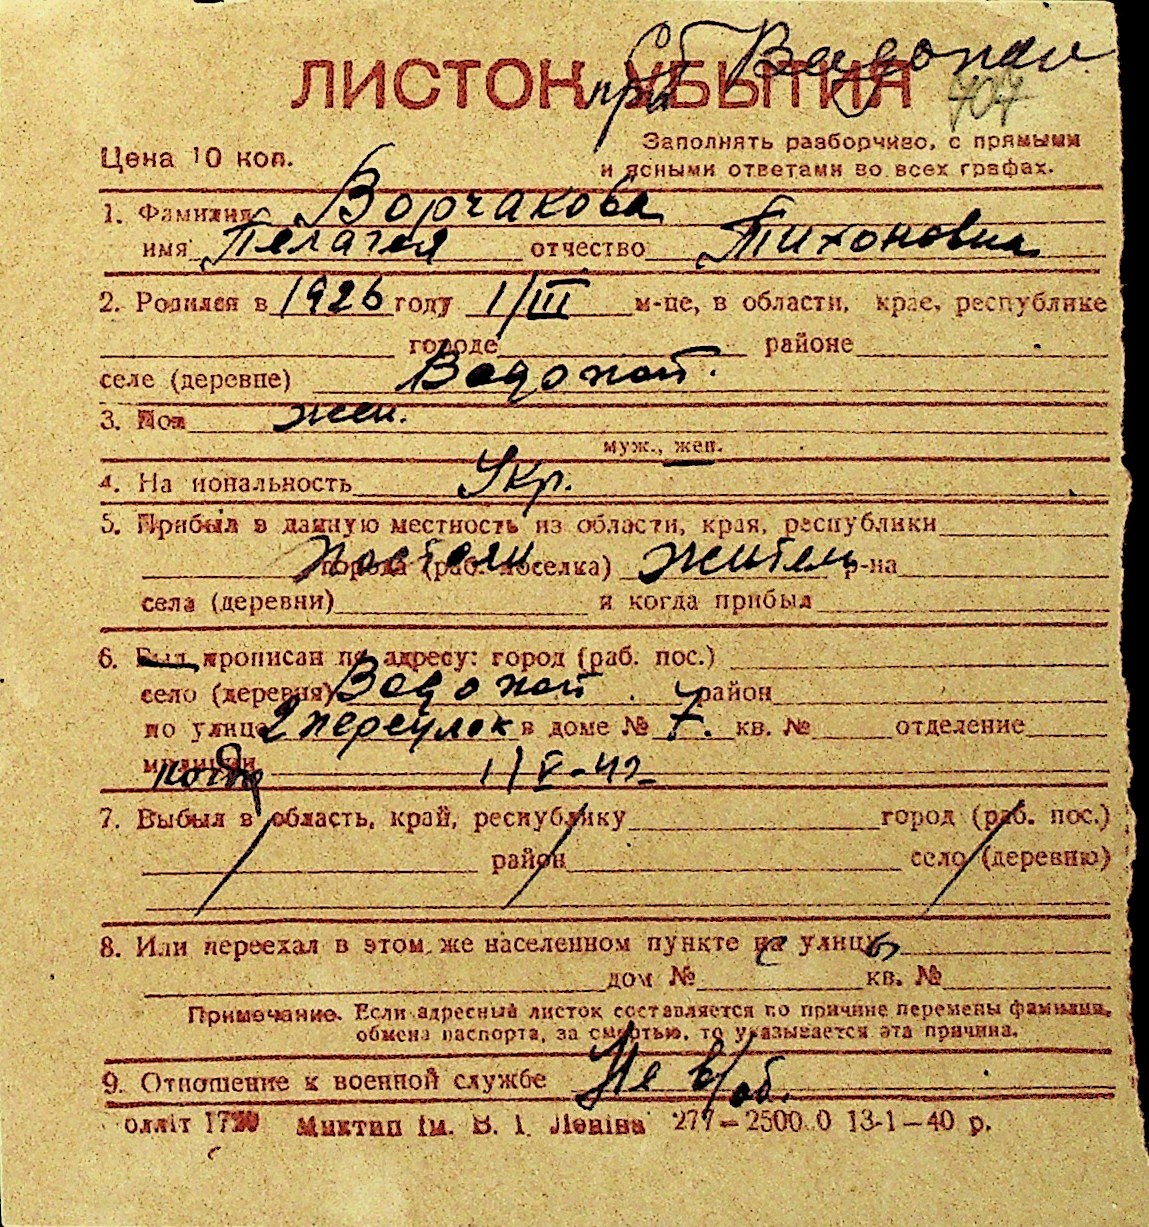 Водопой
ЛИСТОК УБЫТИЯ
приб
707
Цена 10 коп.
Заполнять разборчиво, с прямыми
и ясными ответами во всех графах.
1. Фамилия Ворчакова
имя Пелагея отчество Тихоновна
2. Родился в 1926 году 1/III м-це, в области, крае, республике
городе районе
селе (деревне) Водопой.
3. Пол жен.
муж., жен.
4. Национальность Укр.
5. Прибыл в данную местность из области, края, республики
города (раб. поселка) р-на
Постоян житель
села (деревни) и когда прибыл
6. Был прописан по адресу: город (раб. пос.)
село (деревня) Водопой. район
по улице 2 переулок в доме № 7. кв. № отделение
милиции
когда 1/V-42
7. Выбыл в область, край, республику город (раб. пос.)
район село (деревню)
8. Или переехал в этом же населенном пункте на улицу
дом № кв. №
Примечание. Если адресный листок составляется по причине перемены фамилии,
обмена паспорта, за смертью, то указывается эта причина.
9. Отношение к военной службе Не в/об.
олліт 1720 Миктип ім. В. І. Леніна 277—2500.0 13-1—40 р.